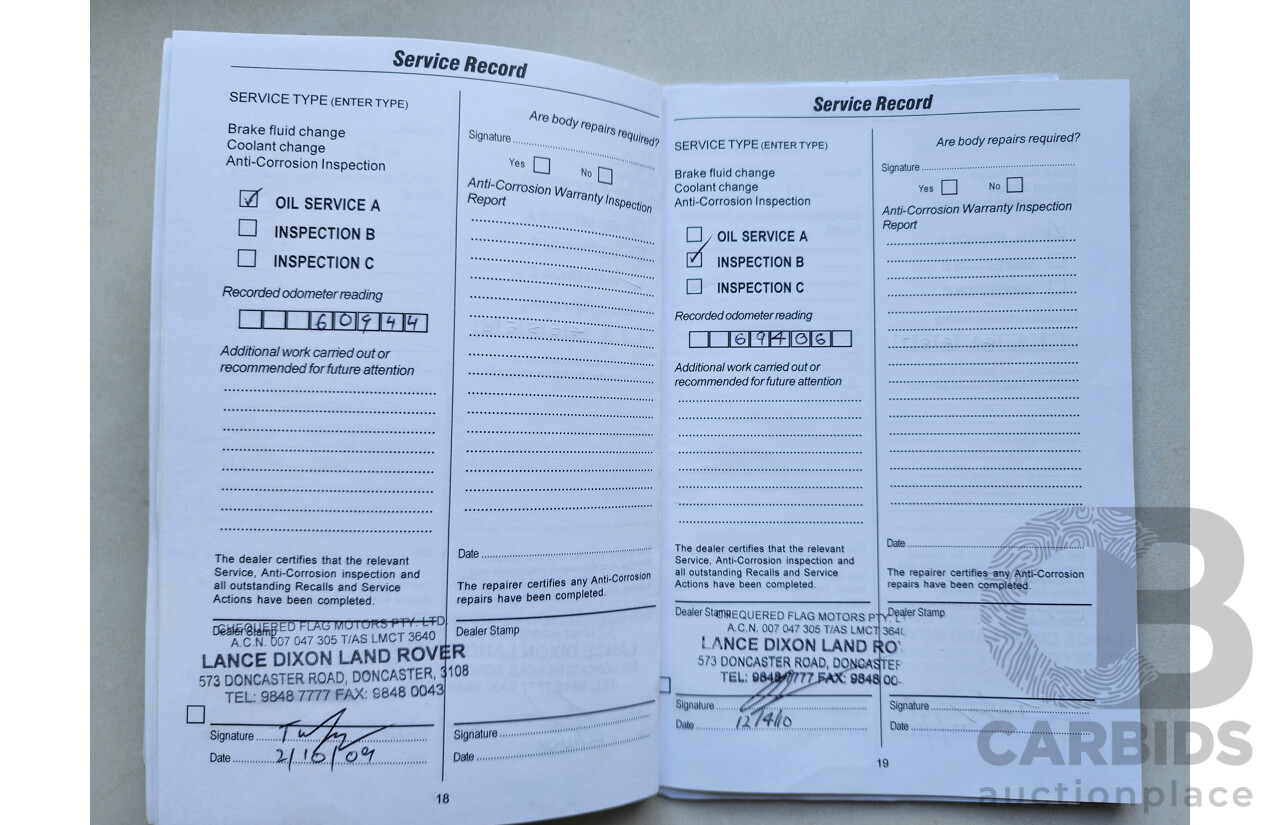 Service Record
SERVICE TYPE (ENTER TYPE)
Brake fluid change
Coolant change
Anti-Corrosion Inspection
OIL SERVICE A
INSPECTION B
INSPECTION C
Recorded odometer reading
60944
Additional work carried out or
recommended for future attention
The dealer certifies that the relevant
Service, Anti-Corrosion inspection and
all outstanding Recalls and Service
Actions have been completed.
Dealer Stamp
CHEQUERED FLAG MOTORS PTY. LTD
A.C.N. 007 047 305 T/AS LMCT 3640
LANCE DIXON LAND ROVER
573 DONCASTER ROAD, DONCASTER, 3108
TEL: 9848 7777 FAX: 9848 0043
Signature
Date 2/10/09
Are body repairs required?
Signature
Yes No
Anti-Corrosion Warranty Inspection
Report
Date
The repairer certifies any Anti-Corrosion
repairs have been completed.
Dealer Stamp
Signature
Date
18
Service Record
SERVICE TYPE (ENTER TYPE)
Brake fluid change
Coolant change
Anti-Corrosion Inspection
OIL SERVICE A
INSPECTION B
INSPECTION C
Recorded odometer reading
69406
Additional work carried out or
recommended for future attention
The dealer certifies that the relevant
Service, Anti-Corrosion inspection and
all outstanding Recalls and Service
Actions have been completed.
Dealer Stamp
CHEQUERED FLAG MOTORS PTY. LT
A.C.N. 007 047 305 T/AS LMCT 364
LANCE DIXON LAND RO
573 DONCASTER ROAD, DONCASTER
TEL: 9848 7777 FAX: 9848 00
Signature
Date 12/4/10
Are body repairs required?
Signature
Yes No
Anti-Corrosion Warranty Inspection
Report
Date
The repairer certifies any Anti-Corrosion
repairs have been completed.
Dealer Stamp
Signature
Date
19
CARBIDS
auctionplace